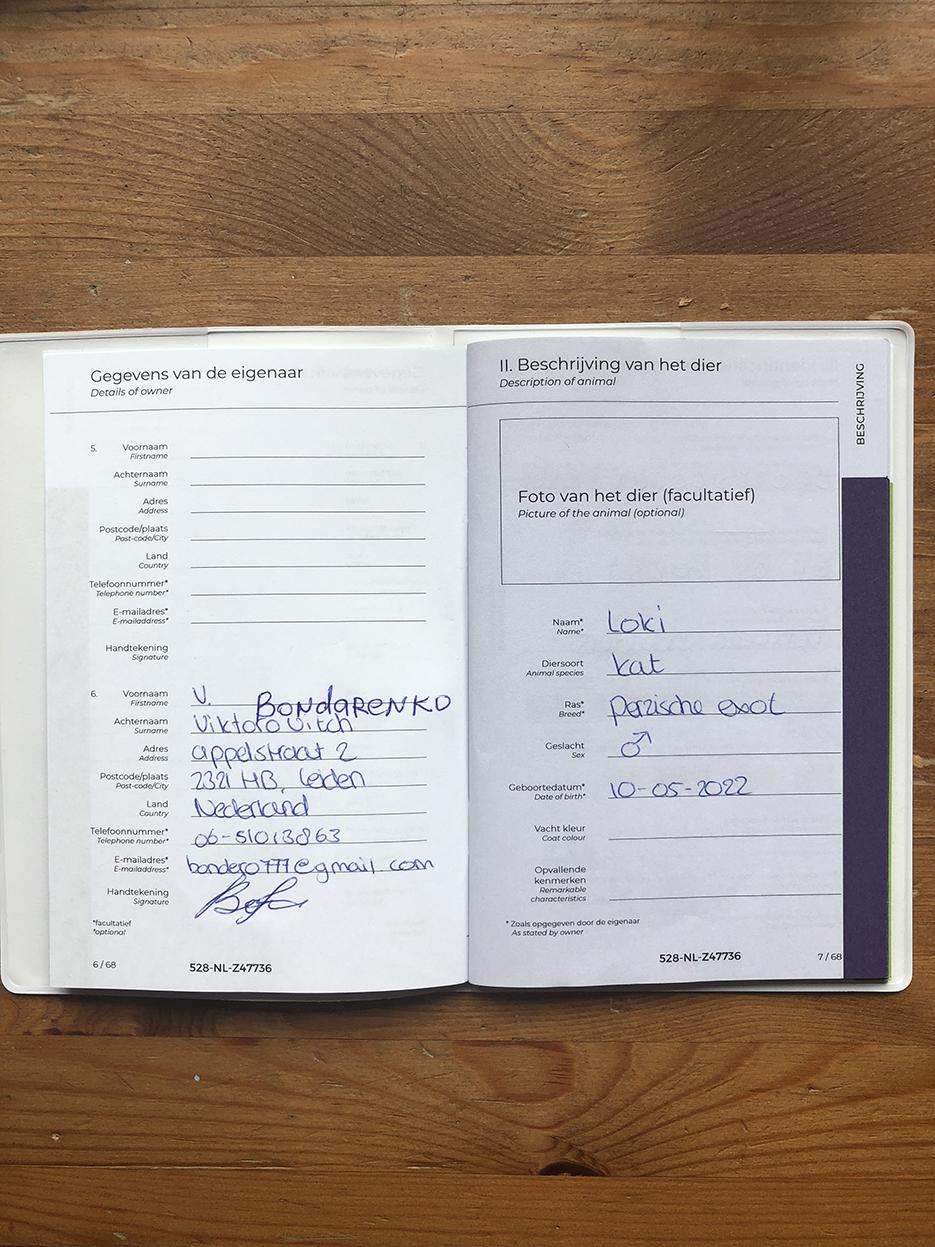 Gegevens van de eigenaar
Details of owner
5. Voornaam
Firstname
Achternaam
Surname
Adres
Address
Postcode/plaats
Post-code/City
Land
Country
Telefoonnummer*
Telephone number*
E-mailadres*
E-mailaddress*
Handtekening
Signature
6. Voornaam V. BONDARENKO
Firstname
Achternaam Viktorovitch
Surname
Adres appelstraat 2
Address
Postcode/plaats 2321 HB, Leiden
Post-code/City
Land Nederland
Country
Telefoonnummer* 06-51013863
Telephone number*
E-mailadres* bondero777@gmail.com
E-mailaddress*
Handtekening
Signature
*facultatief
*optional
6 / 68 528-NL-Z47736
II. Beschrijving van het dier
Description of animal
BESCHRIJVING
Foto van het dier (facultatief)
Picture of the animal (optional)
Naam* Loki
Name*
Diersoort kat
Animal species
Ras* perzische exot
Breed*
Geslacht ♂
Sex
Geboortedatum* 10-05-2022
Date of birth*
Vacht kleur
Coat colour
Opvallende
kenmerken
Remarkable
characteristics
* Zoals opgegeven door de eigenaar
As stated by owner
528-NL-Z47736 7 / 68